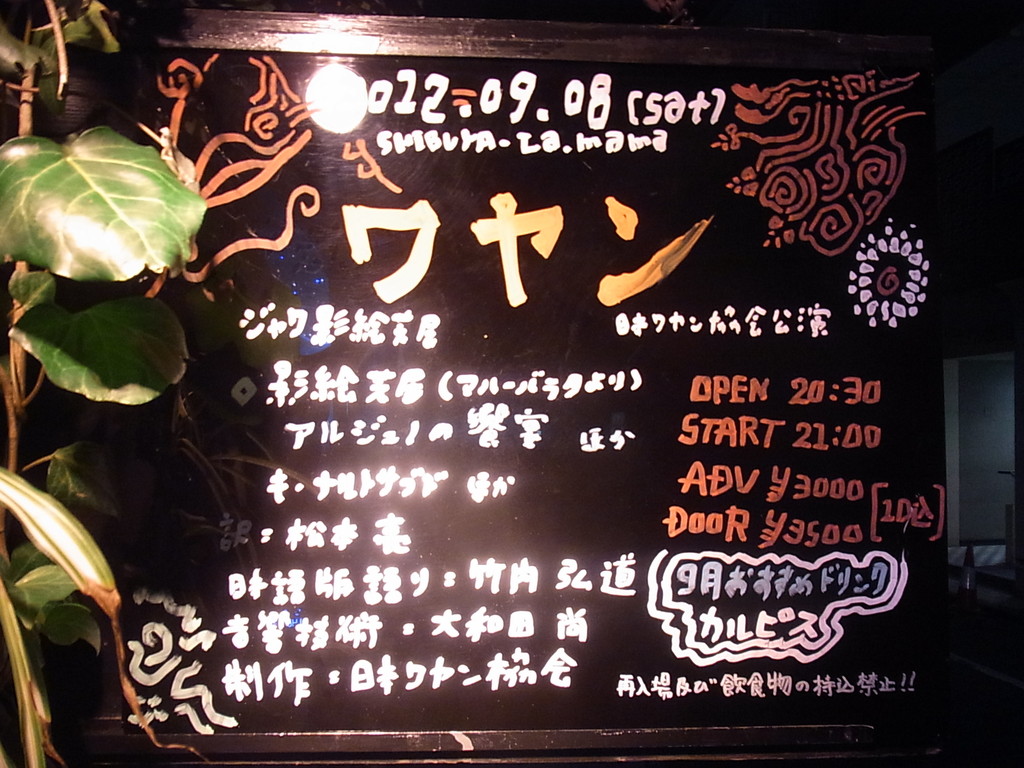 012.09.08 (sat)
SHIBUYA-La.mama
ワヤン
ジャワ影絵芝居
日本ワヤン協会公演
影絵芝居(マハーバラタより)
アルジュノの饗宴 ほか
キ・ナルトサブド ほか
訳:松本亮
日本語版語り:竹内弘道
音響技術:大和田尚
制作:日本ワヤン協会
OPEN 20:30
START 21:00
ADV ¥3000
DOOR ¥3500 [1D込]
9月おすすめドリンク
カルピス
再入場及び飲食物の持込禁止!!